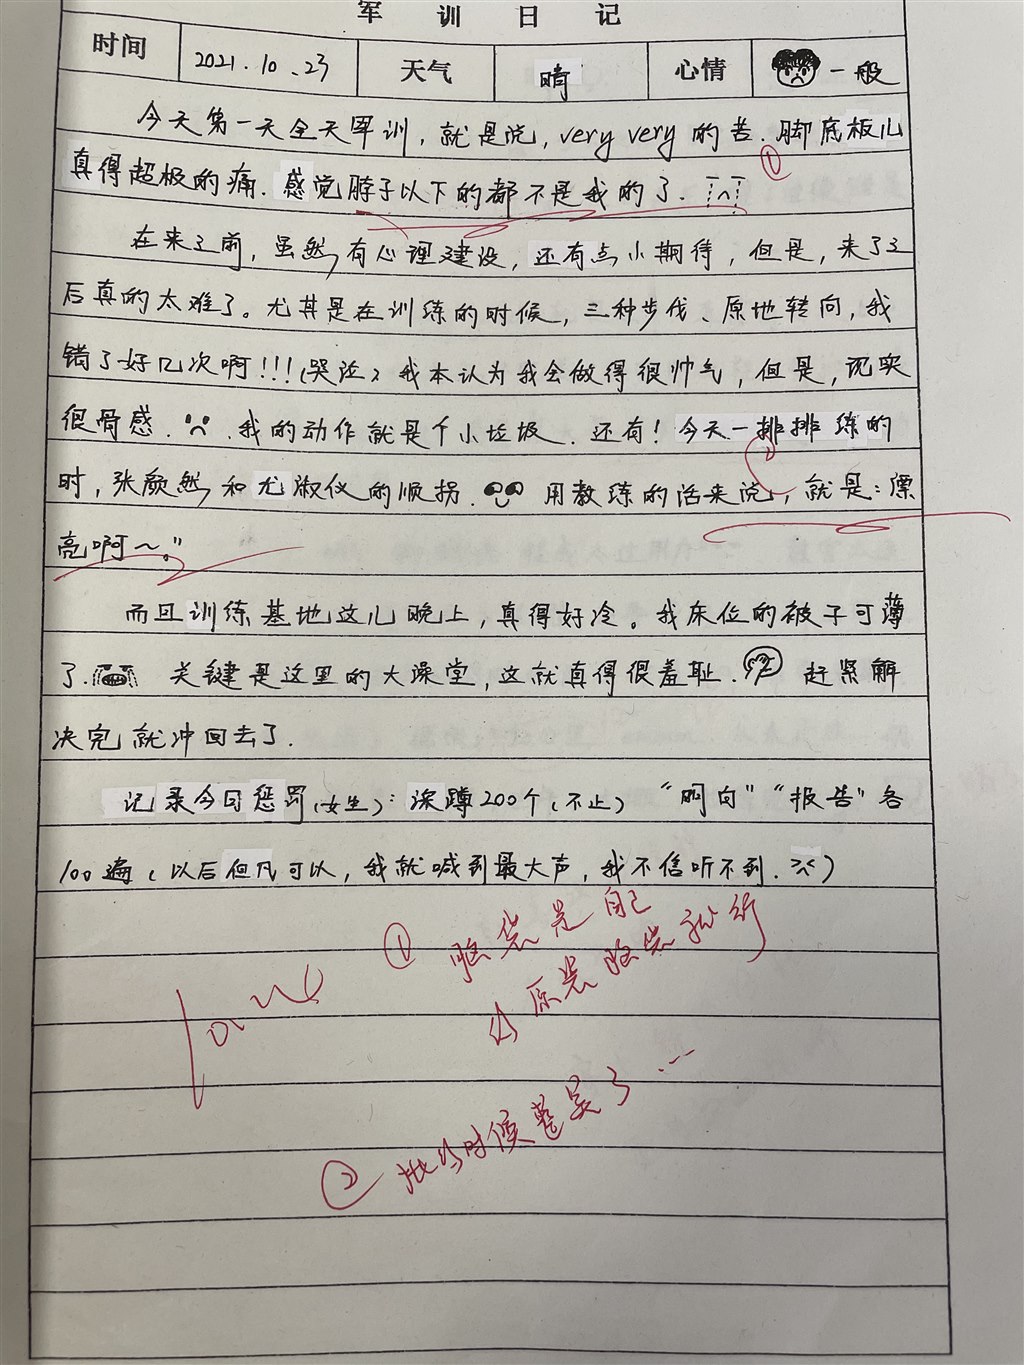 军训日记
时间 2021.10.23 天气 晴 心情 一般
今天第一天全天军训，就是说，very very 的苦．脚底板儿
真得超极的痛．感觉脖子以下的都不是我的了． ①
在来了前，虽然有心理建设，还有点小期待，但是，来了之
后真的太难了。尤其是在训练的时候，三种步伐、原地转向，我
错了好几次啊!!!(哭泣)我本认为我会做得很帅气，但是，现实
很骨感．我的动作就是个小垃圾．还有！今天一排排练的
时，张颜然和尤淑仪的顺拐．用教练的话来说，就是：漂
亮啊～。"
而且训练基地这儿晚上，真得好冷。我床位的被子可薄
了．关键是这里的大澡堂，这就真得很羞耻．赶紧解
决完就冲回去了．
记录今日惩罚(女生)：深蹲200个(不止) "明白""报告"各
100遍(以后但凡可以，我就喊到最大声，我不信听不到．>:<)
① 脑袋是自己
的原装脑袋就行
② 批的时候笑了……